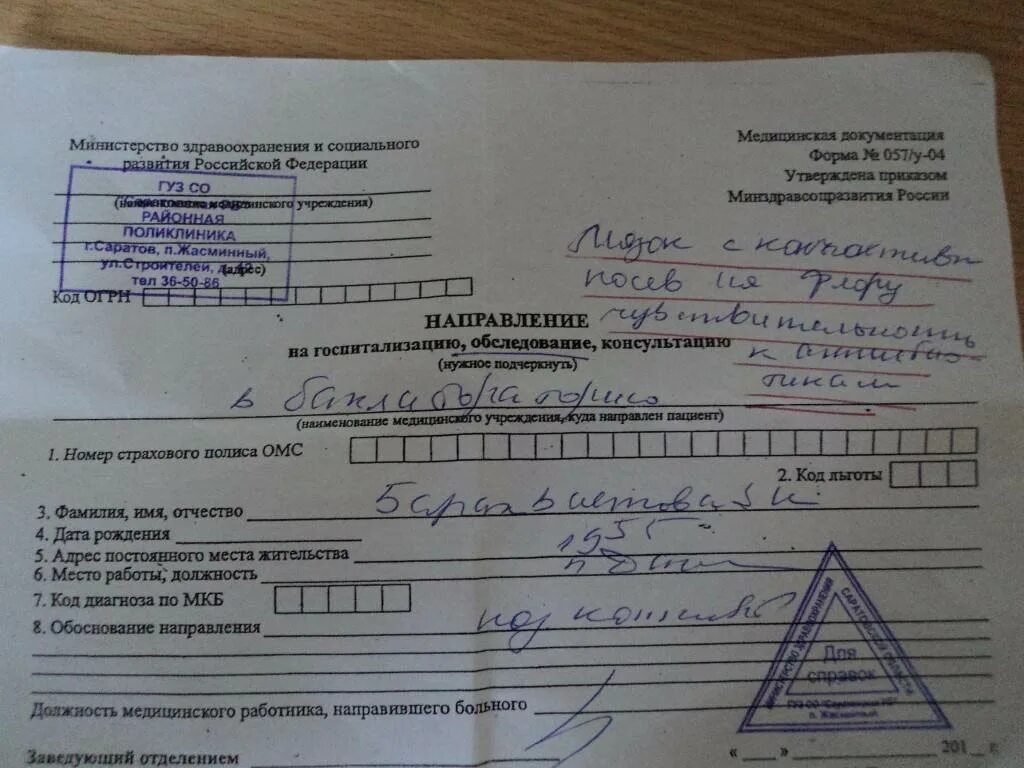 Министерство здравоохранения и социального
развития Российской Федерации
ГУЗ СО
(наименование медицинского учреждения)
РАЙОННАЯ
ПОЛИКЛИНИКА
г.Саратов, п.Жасминный,
ул.Строителей, д.
(адрес)
тел 36-50-86
Код ОГРН
Медицинская документация
Форма № 057/у-04
Утверждена приказом
Минздравсоцразвития России
Мазок с
посев на флору
чувствительность
к антибио-
тикам
НАПРАВЛЕНИЕ
на госпитализацию, обследование, консультацию
(нужное подчеркнуть)
в баклабораторию
(наименование медицинского учреждения, куда направлен пациент)
1. Номер страхового полиса ОМС
2. Код льготы
3. Фамилия, имя, отчество
4. Дата рождения
1955
5. Адрес постоянного места жительства
6. Место работы, должность
7. Код диагноза по МКБ
8. Обоснование направления
МИНИСТЕРСТВО ЗДРАВООХРАНЕНИЯ САРАТОВСКОЙ ОБЛАСТИ
Для
справок
п. Жасминный
Должность медицинского работника, направившего больного
Заведующий отделением
«___» 201_ г.